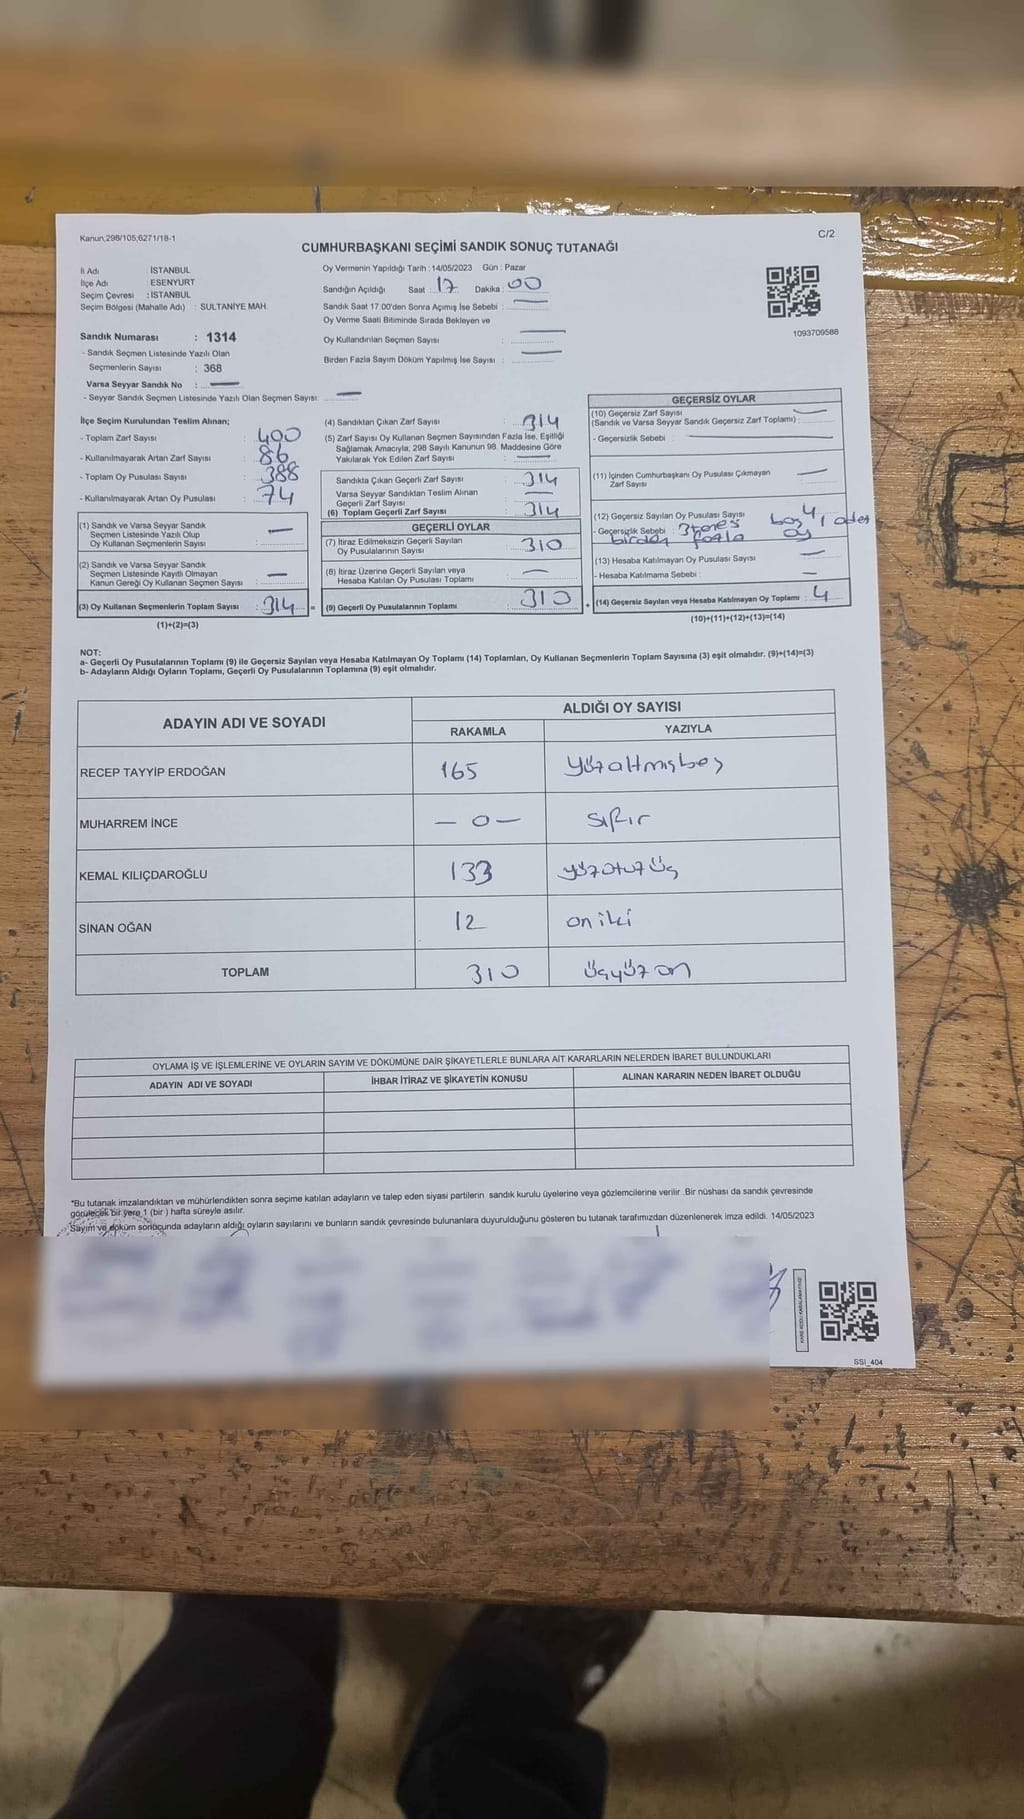 Kanun,298/105,6271/18-1
C/2
CUMHURBAŞKANI SEÇİMİ SANDIK SONUÇ TUTANAĞI
İl Adı İSTANBUL
İlçe Adı : ESENYURT
Seçim Çevresi : İSTANBUL
Seçim Bölgesi (Mahalle Adı) : SULTANİYE MAH.
Sandık Numarası : 1314
- Sandık Seçmen Listesinde Yazılı Olan
Seçmenlerin Sayısı : 368
Varsa Seyyar Sandık No : —
- Seyyar Sandık Seçmen Listesinde Yazılı Olan Seçmen Sayısı: —
Oy Vermenin Yapıldığı Tarih : 14/05/2023 Gün : Pazar
Sandığın Açıldığı Saat : 17 Dakika : 00
Sandık Saat 17.00'den Sonra Açımış İse Sebebi : —
Oy Verme Saati Bitiminde Sırada Bekleyen ve
Oy Kullandırılan Seçmen Sayısı : —
Birden Fazla Sayım Döküm Yapılmış İse Sayısı : —
1093709588
İlçe Seçim Kurulundan Teslim Alınan;
- Toplam Zarf Sayısı : 400
- Kullanılmayarak Artan Zarf Sayısı : 86
- Toplam Oy Pusulası Sayısı : 388
- Kullanılmayarak Artan Oy Pusulası : 74
(1) Sandık ve Varsa Seyyar Sandık
Seçmen Listesinde Yazılı Olup
Oy Kullanan Seçmenlerin Sayısı : —
(2) Sandık ve Varsa Seyyar Sandık
Seçmen Listesinde Kayıtlı Olmayan
Kanun Gereği Oy Kullanan Seçmen Sayısı : —
(3) Oy Kullanan Seçmenlerin Toplam Sayısı : 314 =
(1)+(2)=(3)
(4) Sandıktan Çıkan Zarf Sayısı : 314
(5) Zarf Sayısı Oy Kullanan Seçmen Sayısından Fazla İse, Eşitliği
Sağlamak Amacıyla, 298 Sayılı Kanunun 98. Maddesine Göre
Yakılarak Yok Edilen Zarf Sayısı : —
Sandıkta Çıkan Geçerli Zarf Sayısı : 314
Varsa Seyyar Sandıktan Teslim Alınan
Geçerli Zarf Sayısı : —
(6) Toplam Geçerli Zarf Sayısı : 314
GEÇERLİ OYLAR
(7) İtiraz Edilmeksizin Geçerli Sayılan
Oy Pusulalarının Sayısı : 310
(8) İtiraz Üzerine Geçerli Sayılan veya
Hesaba Katılan Oy Pusulası Toplamı : —
(9) Geçerli Oy Pusulalarının Toplamı : 310 +
GEÇERSİZ OYLAR
(10) Geçersiz Zarf Sayısı
(Sandık ve Varsa Seyyar Sandık Geçersiz Zarf Toplamı) : —
- Geçersizlik Sebebi : —
(11) İçinden Cumhurbaşkanı Oy Pusulası Çıkmayan
Zarf Sayısı : —
(12) Geçersiz Sayılan Oy Pusulası Sayısı : 4
- Geçersizlik Sebebi : 3 tanesi boş, 1 adet
birden fazla oy
(13) Hesaba Katılmayan Oy Pusulası Sayısı : —
- Hesaba Katılmama Sebebi : —
(14) Geçersiz Sayılan veya Hesaba Katılmayan Oy Toplamı : 4
(10)+(11)+(12)+(13)=(14)
NOT:
a- Geçerli Oy Pusulalarının Toplamı (9) ile Geçersiz Sayılan veya Hesaba Katılmayan Oy Toplamı (14) Toplamları, Oy Kullanan Seçmenlerin Toplam Sayısına (3) eşit olmalıdır. (9)+(14)=(3)
b- Adayların Aldığı Oyların Toplamı, Geçerli Oy Pusulalarının Toplamına (9) eşit olmalıdır.
ADAYIN ADI VE SOYADI ALDIĞI OY SAYISI
RAKAMLA YAZIYLA
RECEP TAYYİP ERDOĞAN 165 Yüzaltmışbeş
MUHARREM İNCE — 0 — sıfır
KEMAL KILIÇDAROĞLU 133 yüzotuzüç
SİNAN OĞAN 12 on iki
TOPLAM 310 üçyüz on
OYLAMA İŞ VE İŞLEMLERİNE VE OYLARIN SAYIM VE DÖKÜMÜNE DAİR ŞİKAYETLERLE BUNLARA AİT KARARLARIN NELERDEN İBARET BULUNDUKLARI
ADAYIN ADI VE SOYADI İHBAR İTİRAZ VE ŞİKAYETİN KONUSU ALINAN KARARIN NEDEN İBARET OLDUĞU
*Bu tutanak imzalandıktan ve mühürlendikten sonra seçime katılan adayların ve talep eden siyasi partilerin sandık kurulu üyelerine veya gözlemcilerine verilir. Bir nüshası da sandık çevresinde
görülecek bir yere 1 (bir ) hafta süreyle asılır.
Sayım ve döküm sonucunda adayların aldığı oyların sayılarını ve bunların sandık çevresinde bulunanlara duyurulduğunu gösteren bu tutanak tarafımızdan düzenlenerek imza edildi. 14/05/2023
SSI_404